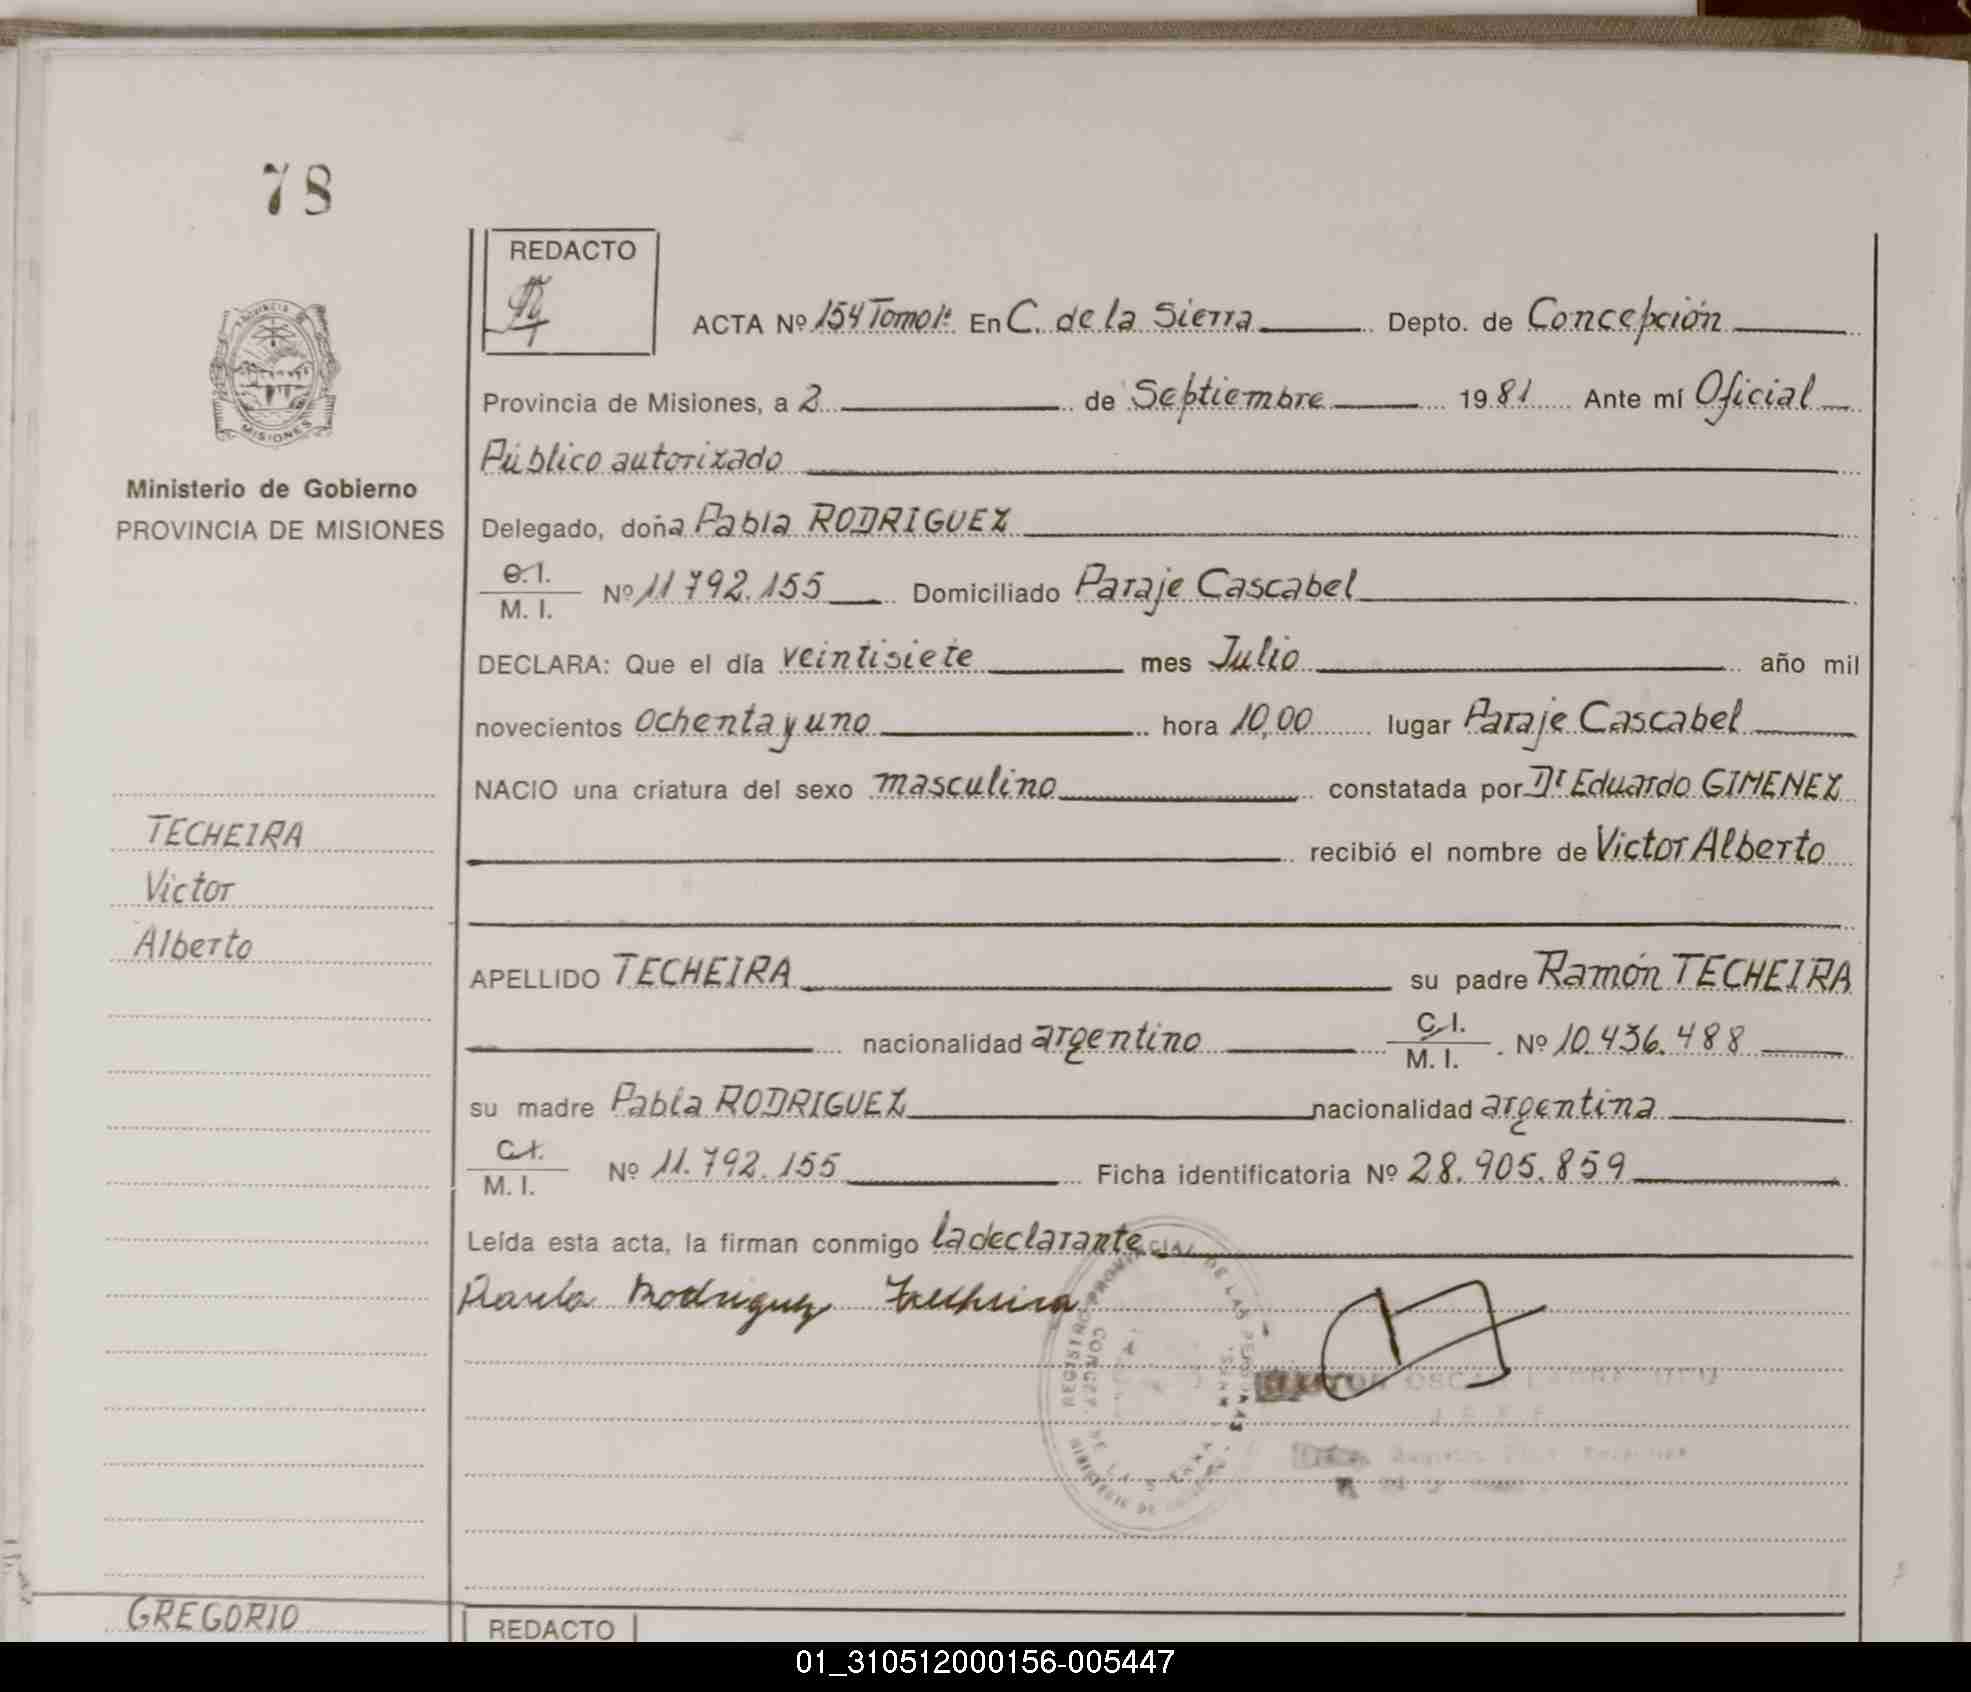 78
REDACTO
ACTA Nº 154 Tomo 1º En C. de la Sierra Depto. de Concepción
Provincia de Misiones, a 2 de Septiembre 1981 Ante mí Oficial
Público autorizado
MISIONES
Ministerio de Gobierno
PROVINCIA DE MISIONES
Delegado, doña Pabla RODRIGUEZ
C.I.
M. I. Nº 11.792.155 Domiciliado Paraje Cascabel
DECLARA: Que el día veintisiete mes Julio año mil
novecientos ochenta y uno hora 10,00 lugar Paraje Cascabel
NACIO una criatura del sexo masculino constatada por Dr Eduardo GIMENEZ
recibió el nombre de Victor Alberto
TECHEIRA
Victor
Alberto
APELLIDO TECHEIRA su padre Ramón TECHEIRA
nacionalidad argentino C.I. M. I. Nº 10.436.488
su madre Pabla RODRIGUEZ nacionalidad argentina
C.I.
M. I. Nº 11.792.155 Ficha identificatoria Nº 28.905.859
Leída esta acta, la firman conmigo la declarante
Rodriguez Techeira
REGISTRO PROVINCIAL DE LAS PERSONAS
CONCEP. DE LA SIERRA
OSCAR
GREGORIO
REDACTO
01_310512000156-005447